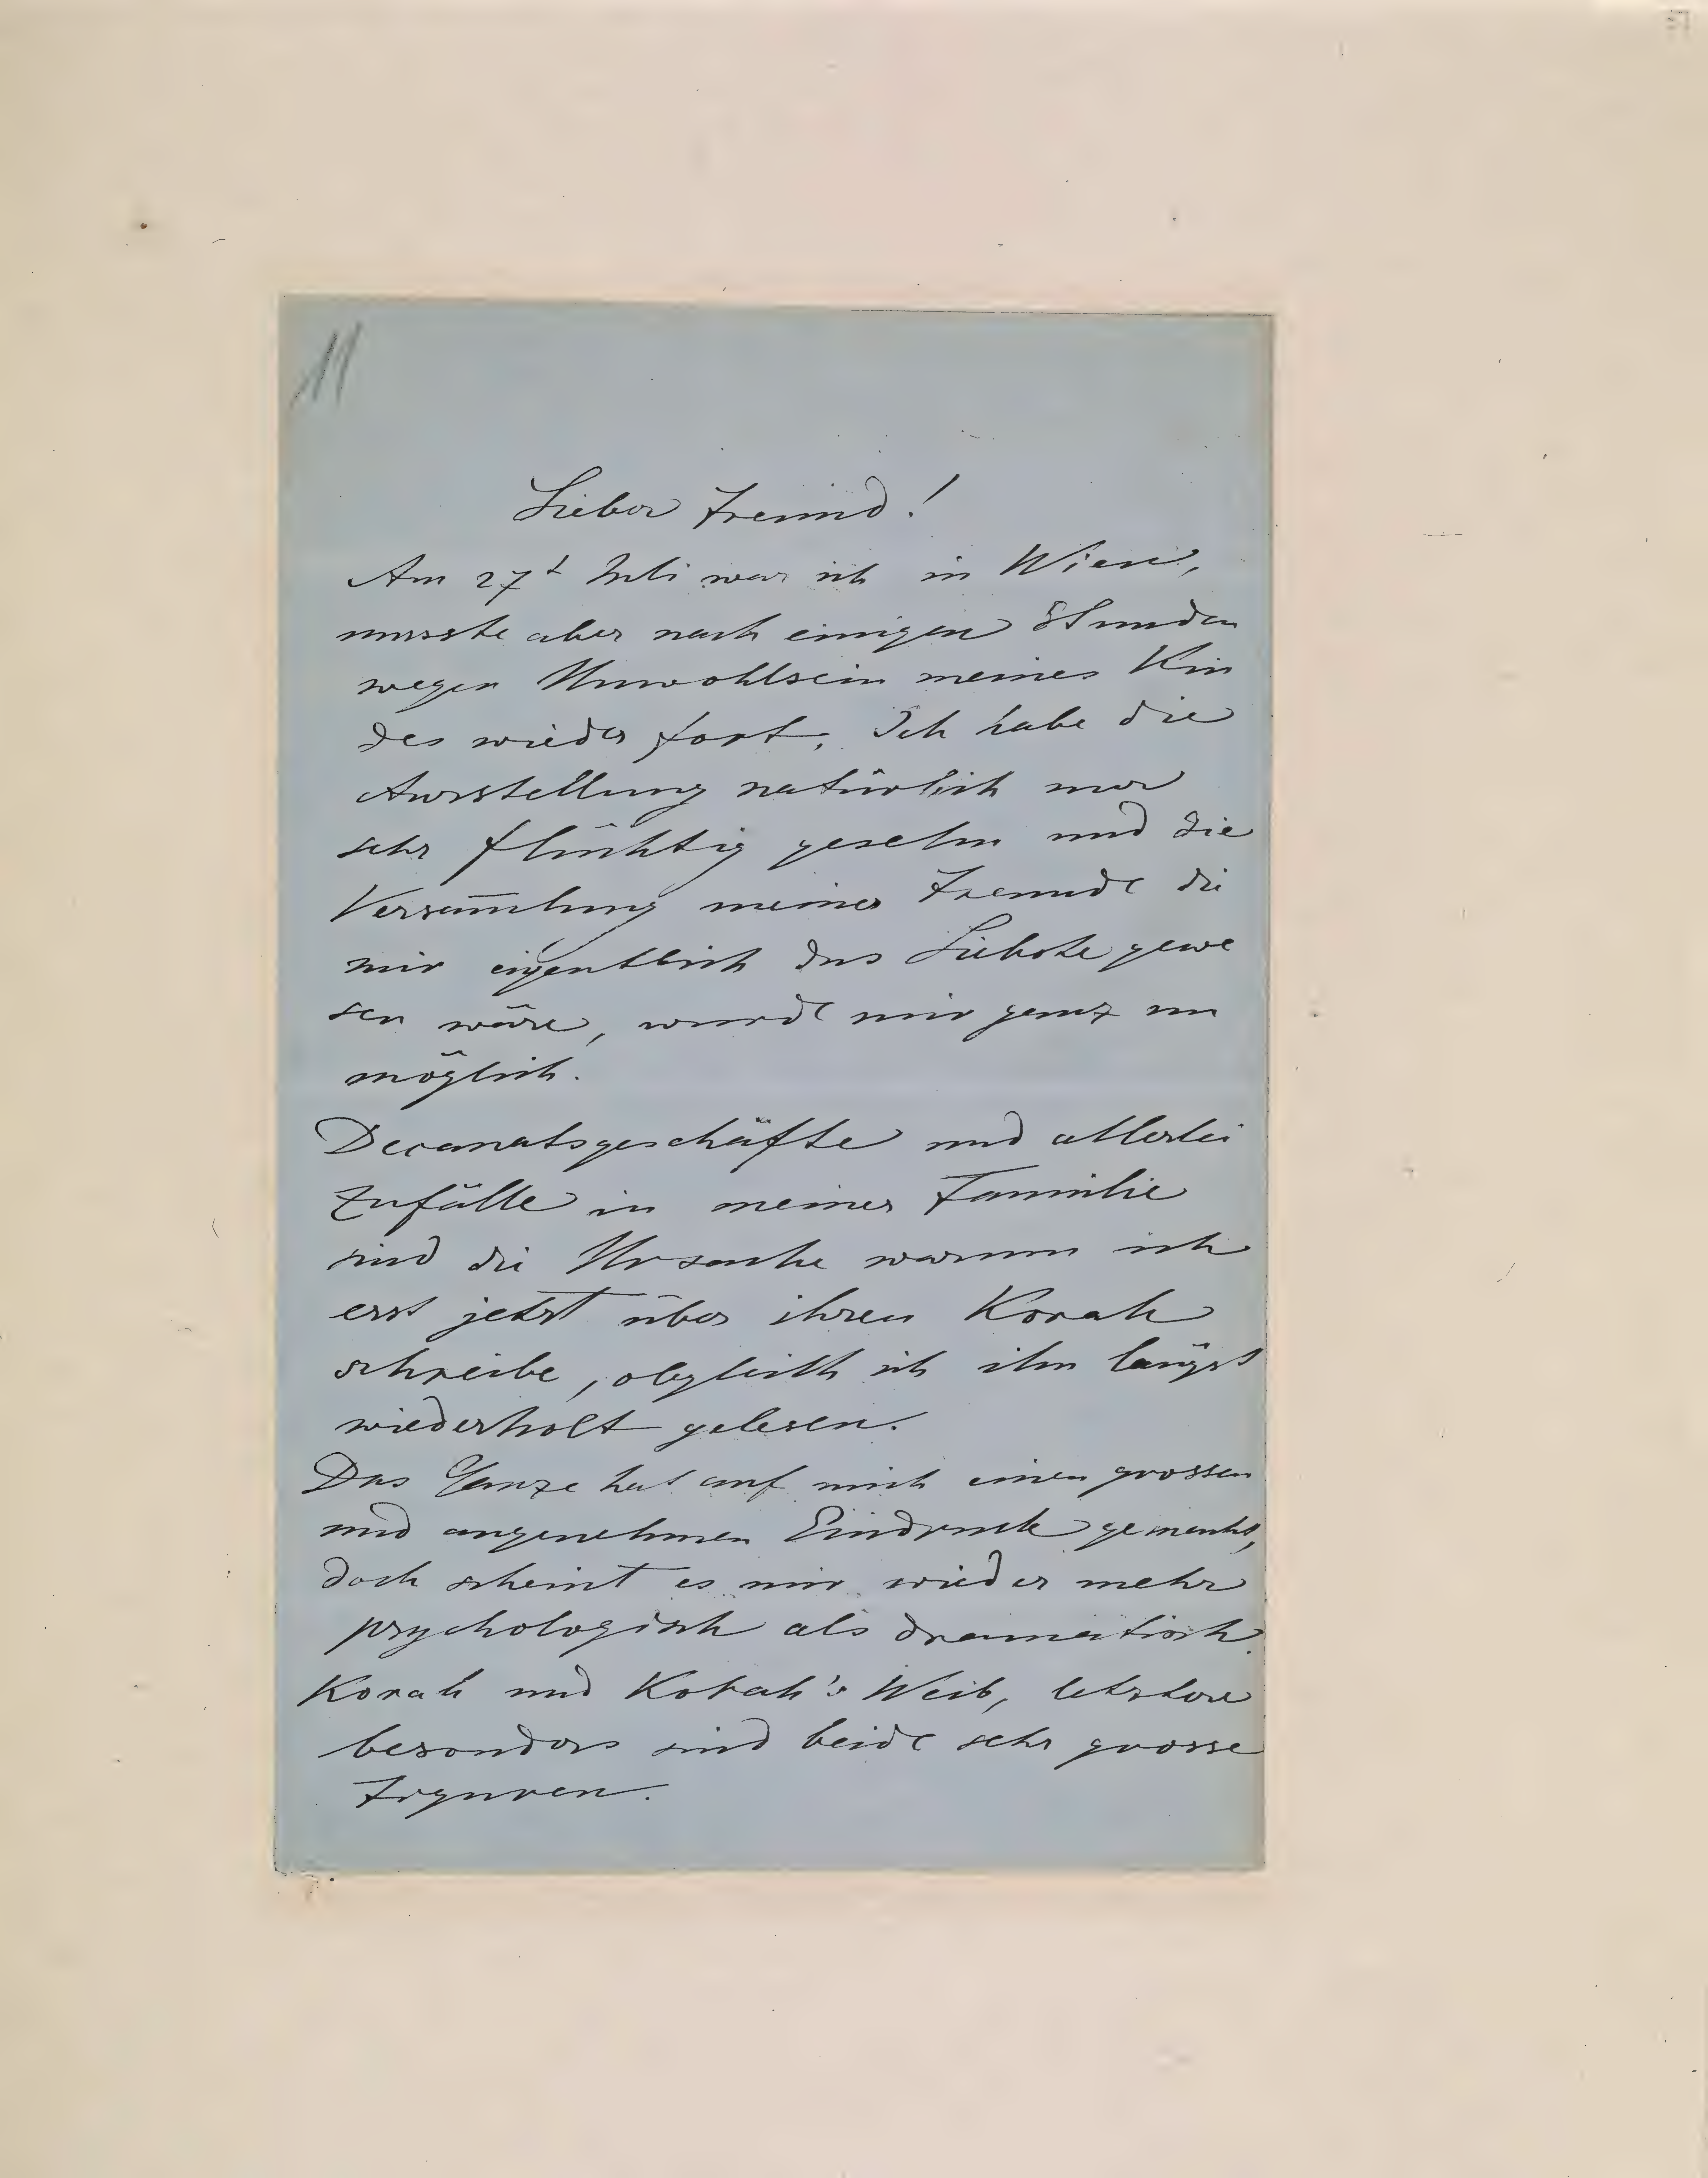 11
Lieber Freund!
Am 27t Juli war ich in Wien,
musste aber nach einigen Stunden
wegen Unwohlsein meines Kin
des wieder fort. Ich habe die
Ausstellung natürlich nur
sehr flüchtig gesehn und die
Versam̄lung meiner Freunde die
mir eigentlich das Liebste gewe
sen wäre, wurde mir ganz un
möglich.
Decanatsgeschäfte und allerlei
Zufälle in meiner Familie
sind die Ursache warum ich
erst jetzt über ihren Korah
schreibe, obgleich ich ihn längst
wiederholt gelesen.
Das Ganze hat auf mich einen grossen
und angenehmen Eindruck gemacht,
doch scheint es mir wieder mehr
psychologisch als dramatisch.
Korah und Korah's Weib, letztere
besonders sind beide sehr grosse
Figuren.